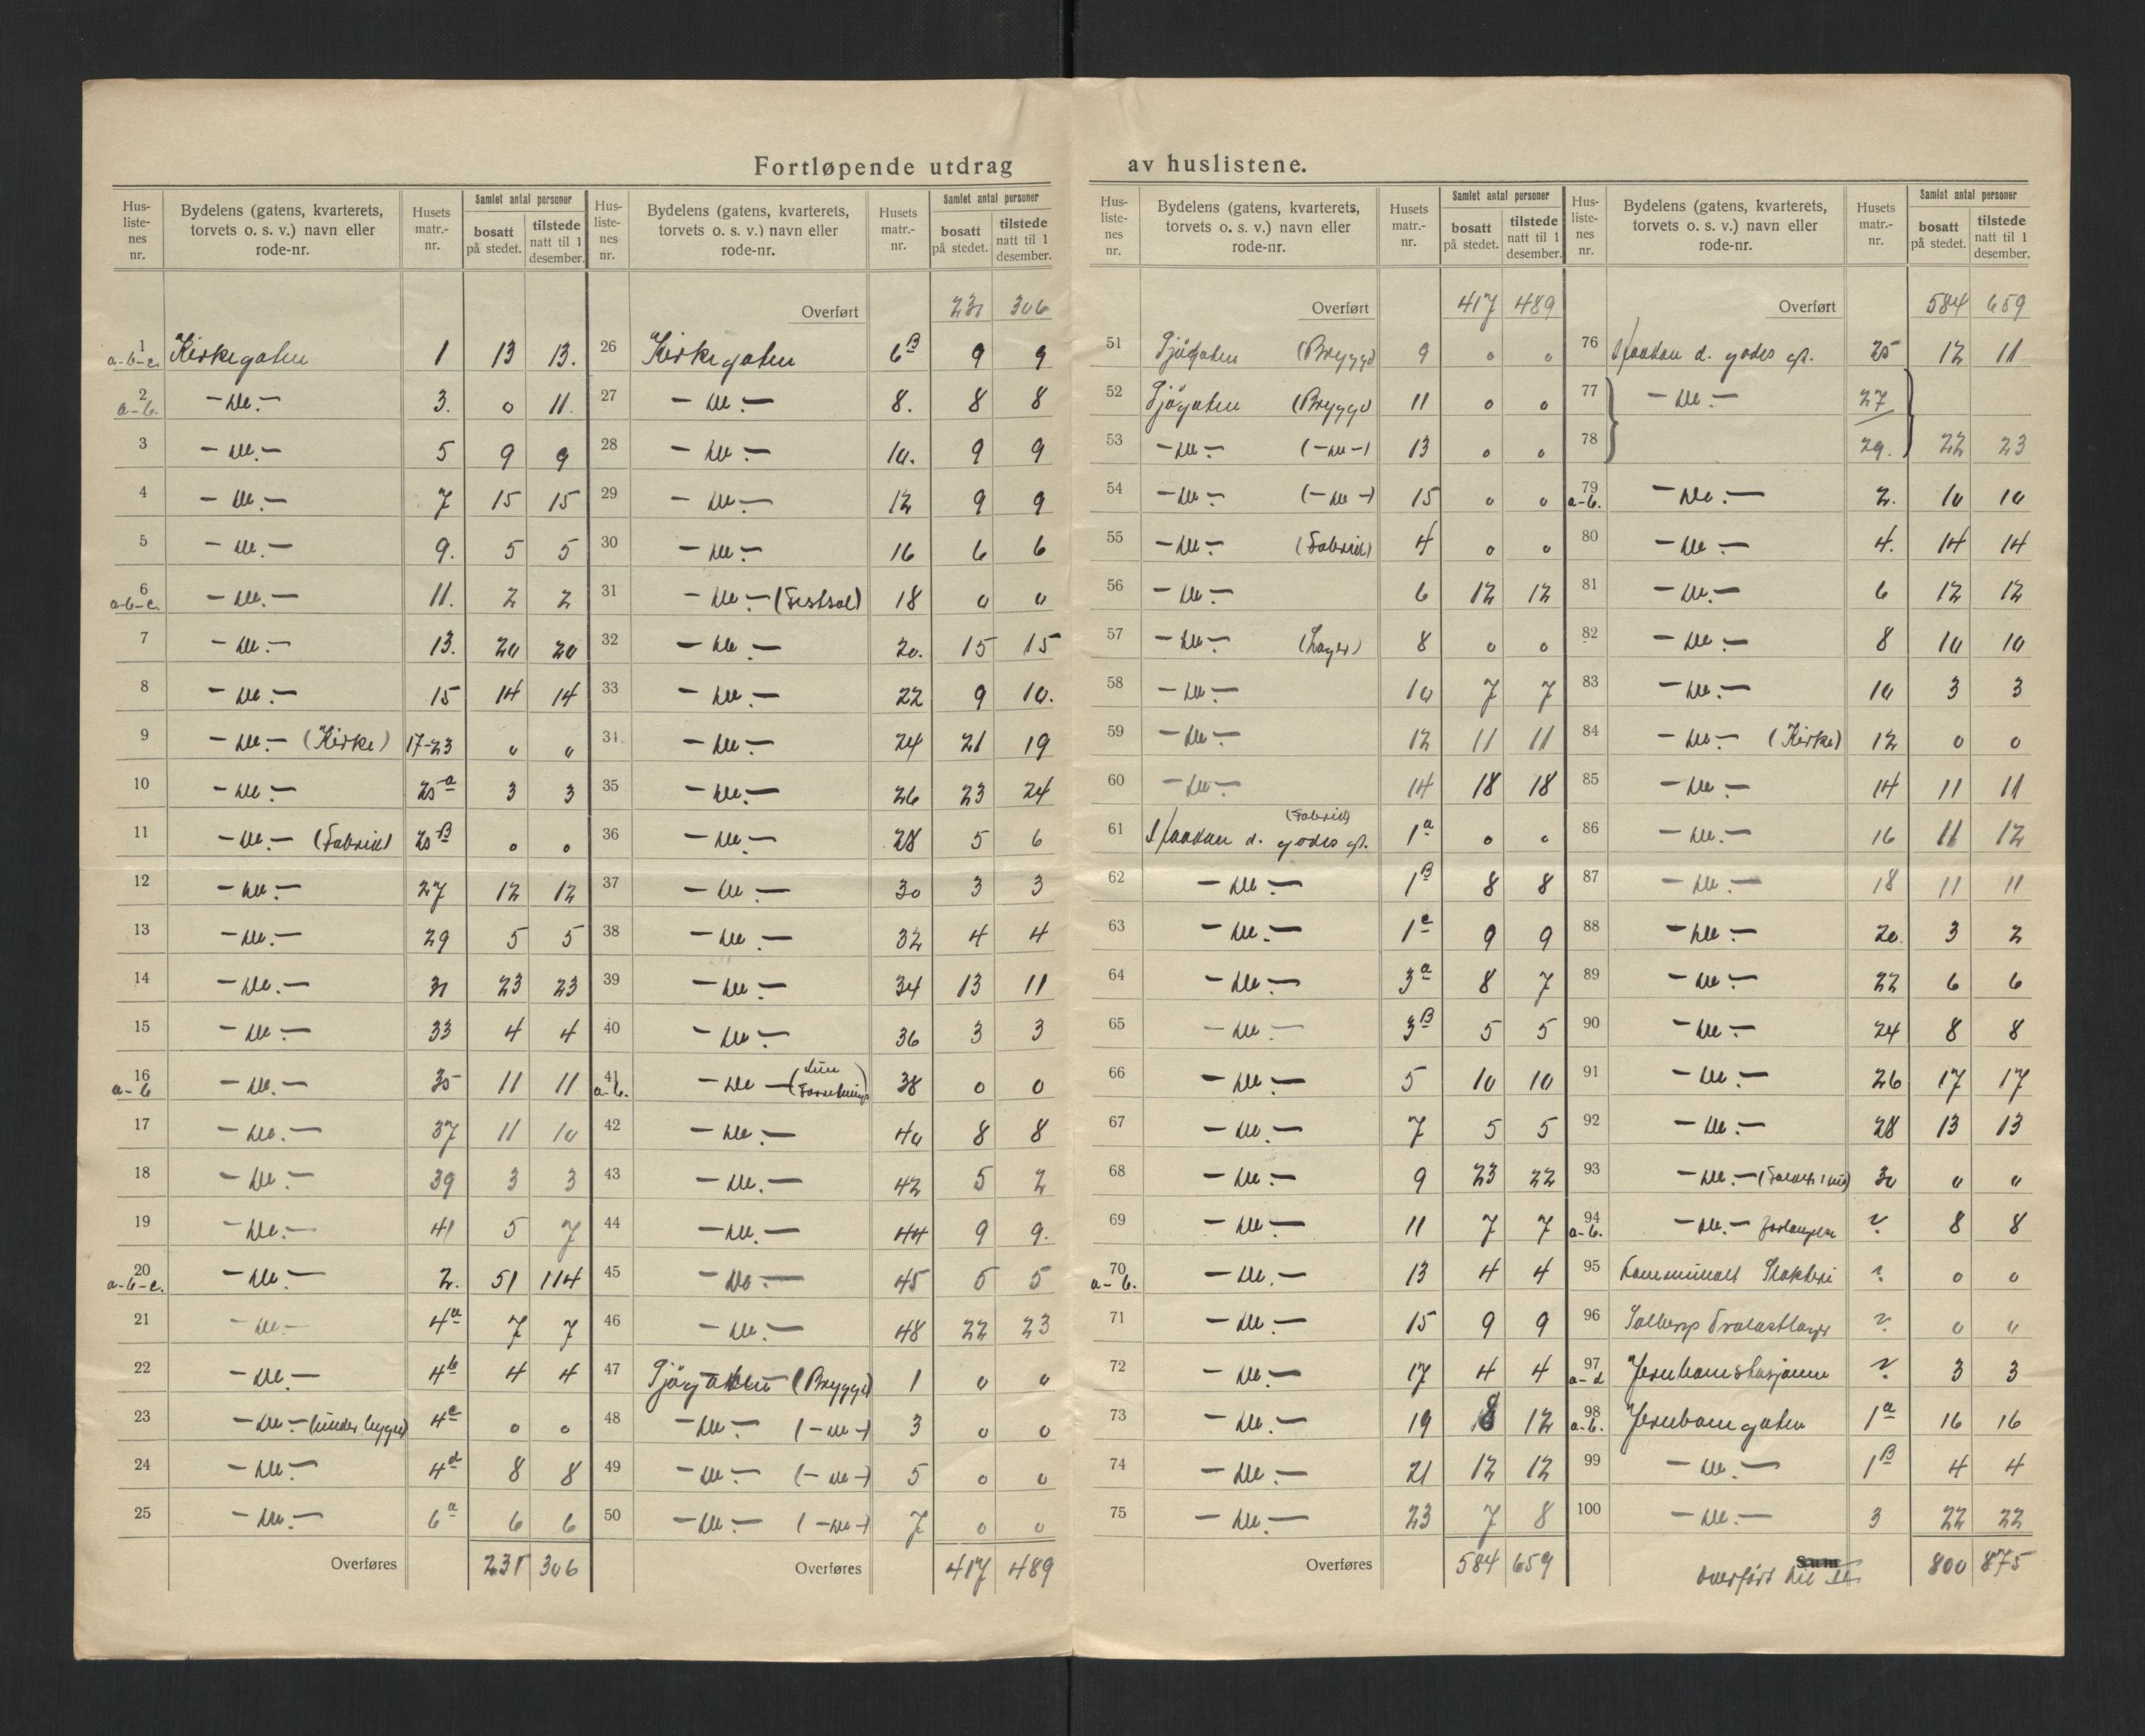 Fortløpende utdrag av huslistene.
Hus-liste-nes nr. | Bydelens (gatens, kvarterets, torvets o. s. v.) navn eller rode-nr. | Husets matr.-nr. | Samlet antal personer | bosatt på stedet. | tilstede natt til 1 desember.
1 a-b-c. Kirkegaten 1 13 13.
2 a-b. -"- 3. 0 11.
3 -"- 5 9 9
4 -"- 7 15 15
5 -"- 9. 5 5
6 a-b-c. -"- 11. 2 2
7 -"- 13. 20 20
8 -"- 15 14 14
9 -"- (Kirke) 17-23 0 0
10 -"- 25a 3 3
11 -"- (Fabrik) 25B 0 0
12 -"- 27 12 12
13 -"- 29 5 5
14 -"- 31 23 23
15 -"- 33 4 4
16 a-b -"- 35 11 11
17 -"- 37 11 10
18 -"- 39 3 3
19 -"- 41 5 7
20 a-b-c. -"- 2. 51 114
21 -"- 4a 7 7
22 -"- 4b 4 4
23 -"- (under bygge) 4c 0 0
24 -"- 4d 8 8
25 -"- 6a 6 6
Overføres 231 306
Hus-liste-nes nr. | Bydelens (gatens, kvarterets, torvets o. s. v.) navn eller rode-nr. | Husets matr.-nr. | Samlet antal personer | bosatt på stedet. | tilstede natt til 1 desember.
Overført 231 306
26 Kirkegaten 6B 9 9
27 -"- 8. 8 8
28 -"- 10. 9 9
29 -"- 12 9 9
30 -"- 16 6 6
31 -"- (Festsal) 18 0 0
32 -"- 20. 15 15
33 -"- 22 9 10.
34 -"- 24 21 19
35 -"- 26 23 24
36 -"- 28 5 6
37 -"- 30 3 3
38 -"- 32 4 4
39 -"- 34 13 11
40 -"- 36 3 3
41 a-b. -"- 38 0 0
42 -"- 40 8 8
43 -"- 42 5 2
44 -"- 44 9 9.
45 -"- 45 5 5
46 -"- 48 22 23
47 Sjögaten (Brygge) 1 0 0
48 -"- (-"-) 3 0 0
49 -"- (-"-) 5 0 0
50 -"- (-"-) 7 0 0
Overføres 417 489
Hus-liste-nes nr. | Bydelens (gatens, kvarterets, torvets o. s. v.) navn eller rode-nr. | Husets matr.-nr. | Samlet antal personer | bosatt på stedet. | tilstede natt til 1 desember.
Overført 417 489
51 Sjögaten (Brygge) 9 0 0
52 Sjögaten (Brygge) 11 0 0
53 -"- (-"-) 13 0 0
54 -"- (-"-) 15 0 0
55 -"- (Fabrik) 4 0 0
56 -"- 6 12 12
57 -"- (Lager) 8 0 0
58 -"- 10 7 7
59 -"- 12 11 11
60 -"- 14 18 18
61 Haakon d. godes gt. (Fabrik) 1a 0 0
62 -"- 1B 8 8
63 -"- 1c 9 9
64 -"- 3a 8 7
65 -"- 3B 5 5
66 -"- 5 10 10
67 -"- 7 5 5
68 -"- 9 23 22
69 -"- 11 7 7
70 a-b. -"- 13 4 4
71 -"- 15 9 9
72 -"- 17 4 4
73 -"- 19 8 12
74 -"- 21 12 12
75 -"- 23 7 8
Overføres 584 659
Hus-liste-nes nr. | Bydelens (gatens, kvarterets, torvets o. s. v.) navn eller rode-nr. | Husets matr.-nr. | Samlet antal personer | bosatt på stedet. | tilstede natt til 1 desember.
Overført 584 659
76 Haakon d. godes gt. 25 12 11
77 -"- 27
78 29. 22 23
79 a-b. -"- 2. 10 10
80 -"- 4. 14 14
81 -"- 6 12 12
82 -"- 8 10 10
83 -"- 10 3 3
84 -"- (Kirke) 12 0 0
85 -"- 14 11 11
86 -"- 16 11 12
87 -"- 18 11 11
88 -"- 20. 3 2
89 -"- 22 6 6
90 -"- 24 8 8
91 -"- 26 17 17
92 -"- 28 13 13
93 -"- 30 0 0
94 a-b. -"- forlengelse ? 8 8
95 Kommunalt Slakteri ? 0 0
96 ? 0 0
97 a-d Jernbanestasjonen ? 3 3
98 a-b. Jernbanegaten 1a 16 16
99 -"- 1B 4 4
100 -"- 3 22 22
Sum
overført til II 800 875